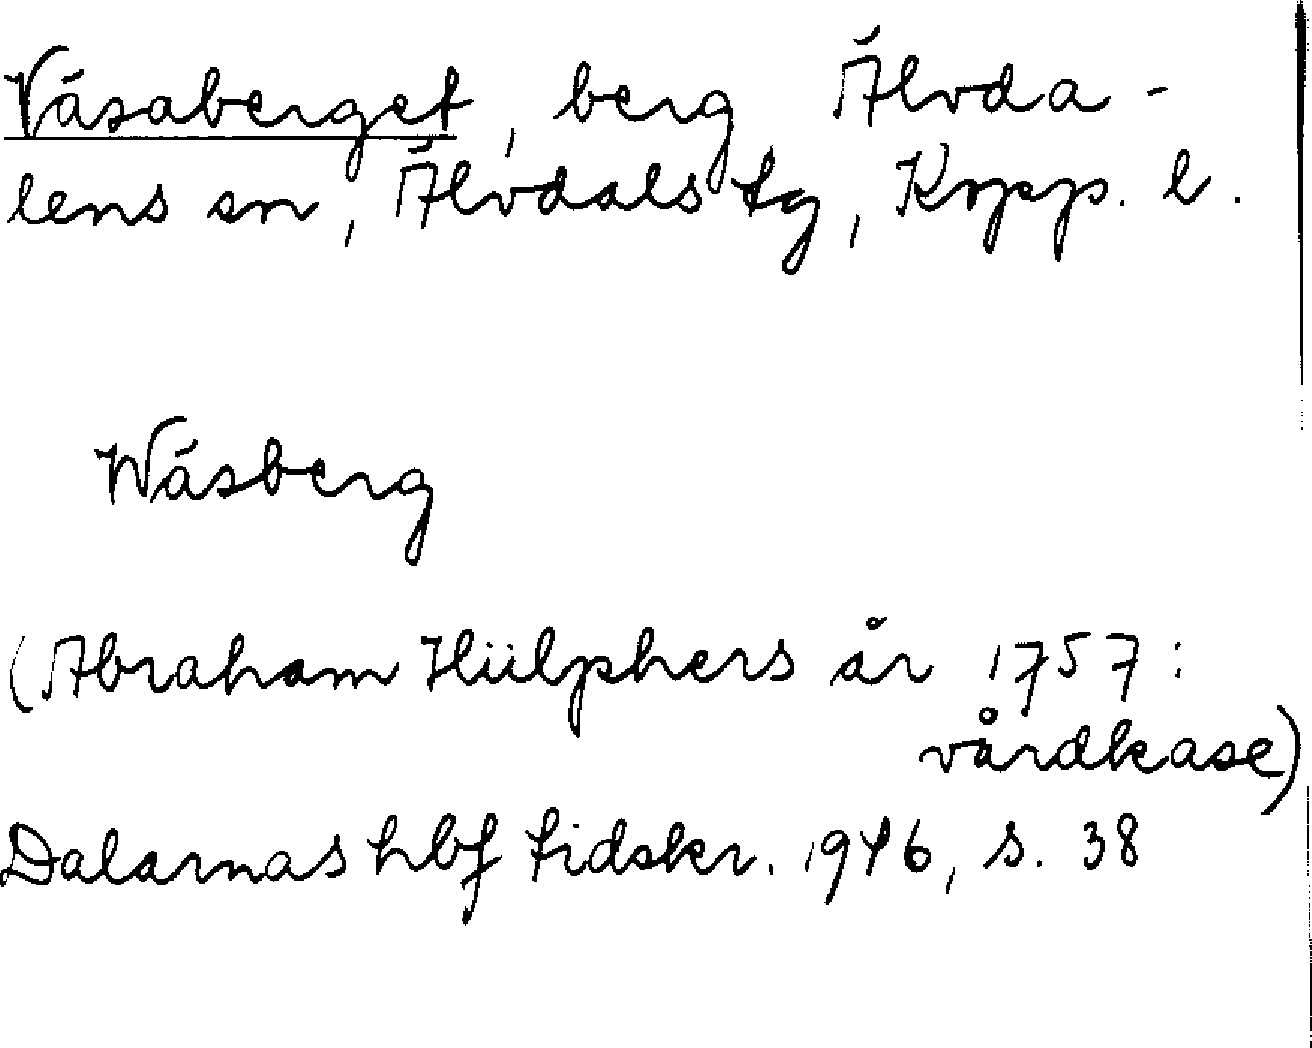 Väsaberget, berg Älvda-
lens sn, Älvdals tg, Kopp. l.
Wäsberg
(Abraham Hülphers år 1757:
vårdkase)
Dalarnas hbf tidskr. 1946, s. 38